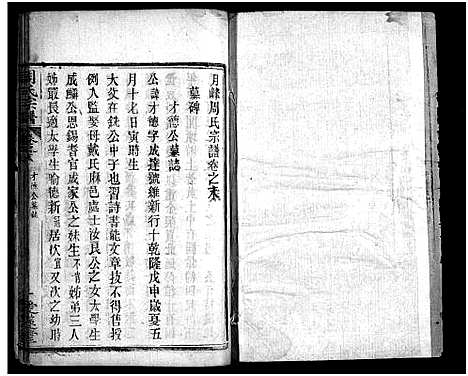 月峰周氏宗譜卷之末
墓碑
才德公墓誌
公諱才德字成達號維新行十乾隆戊申歲夏五
月十七日寅時生
大父在鎬公中子也習詩書能文章技不得售授
例入監娶母戴氏麻邑處士汝良公之女太學生
成麟公恩錫耆官成家公之妹生不肖姊弟三人
姊嚴長適太學生喻德新居次宜又次之幼時
周氏宗譜
才德公墓誌